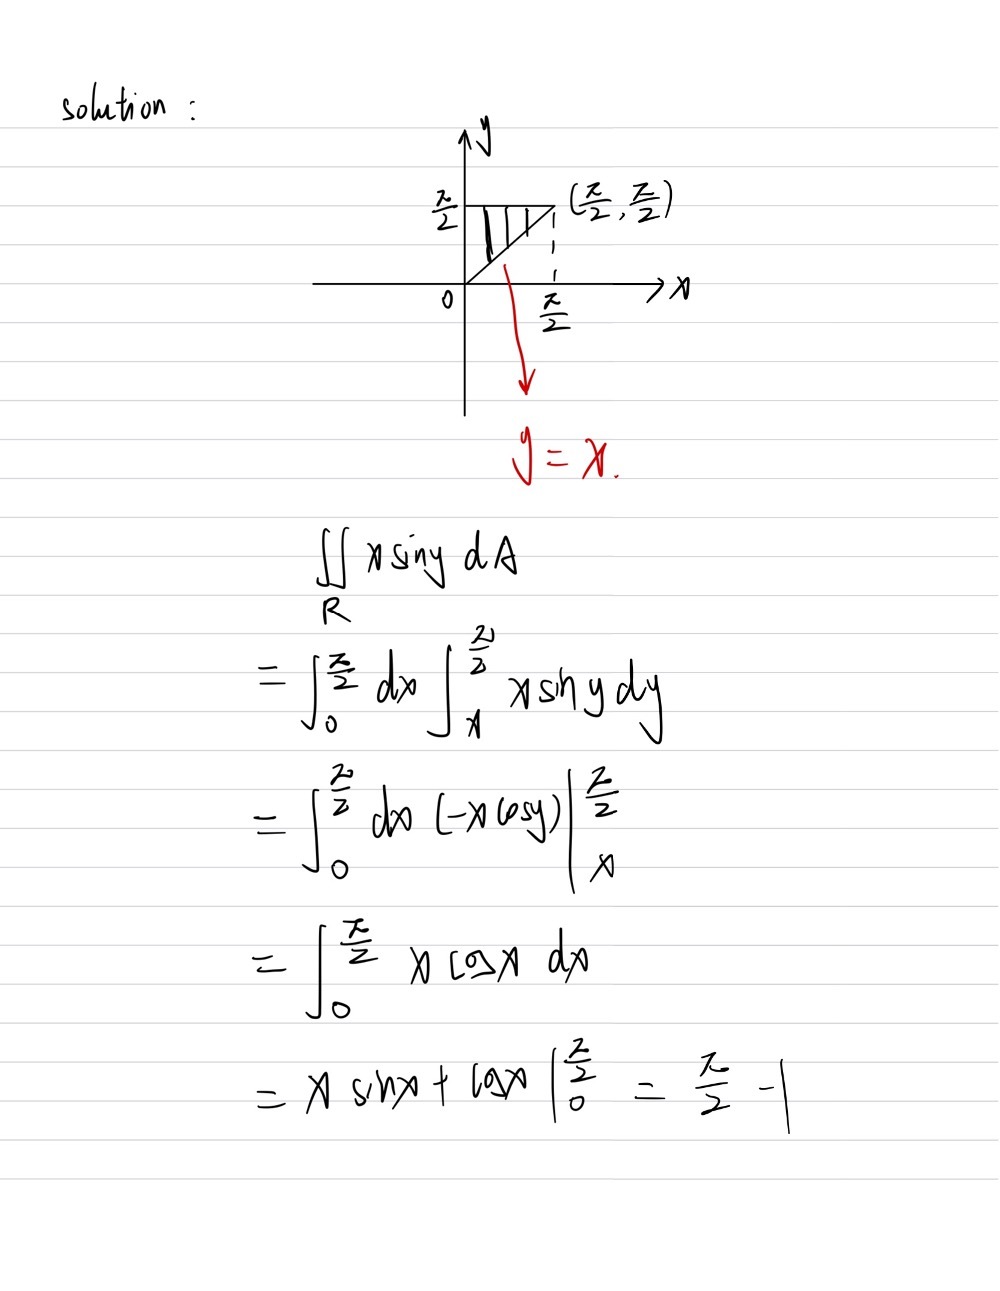 solution :
y
π/2
(π/2, π/2)
0
π/2
x
y = x.
∬_R x sin y dA
= ∫_0^{π/2} dx ∫_x^{π/2} x sin y dy
= ∫_0^{π/2} dx (-x cos y) |_x^{π/2}
= ∫_0^{π/2} x cos x dx
= x sin x + cos x |_0^{π/2} = π/2 - 1